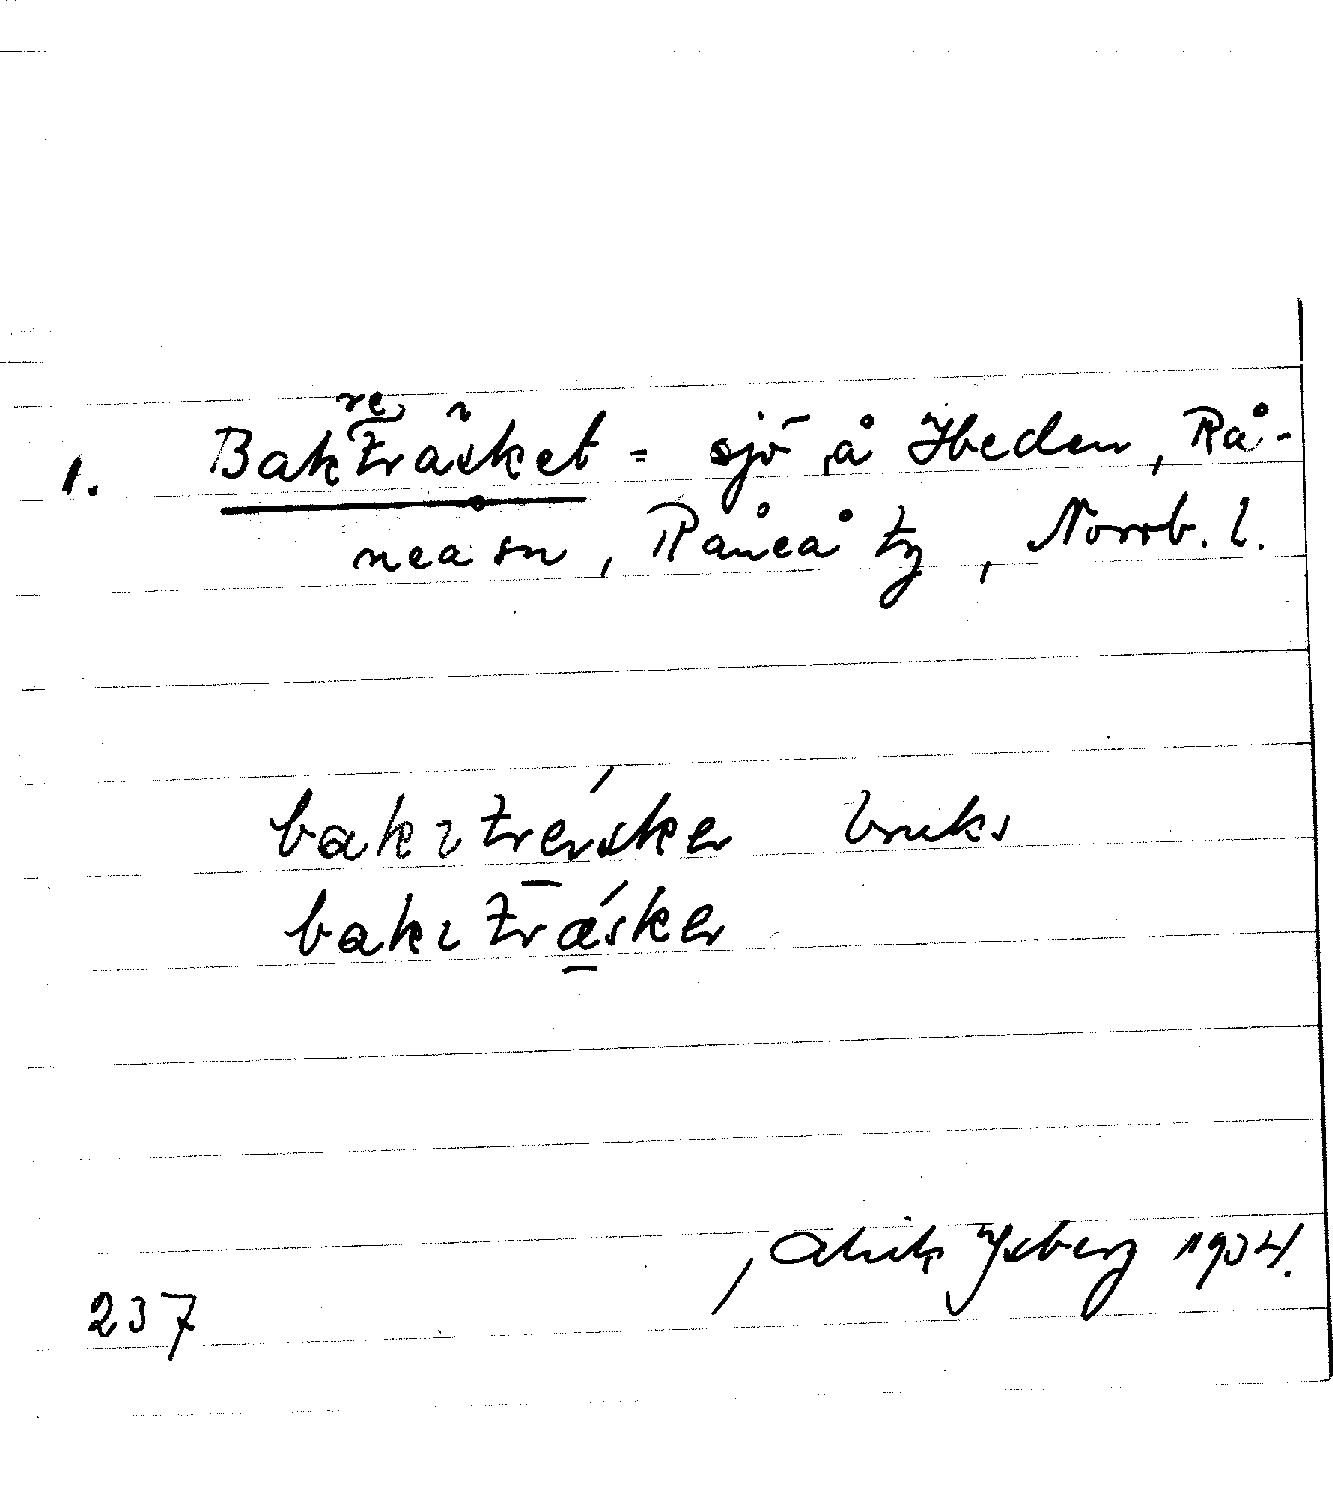 re
1. Bakträsket = sjö å Heden, Rå-
nea sn, Råneå tg, Norrb. l.
bakıtrersker bruks
bakıtræsker
Alrik Ysberg 1934.
237